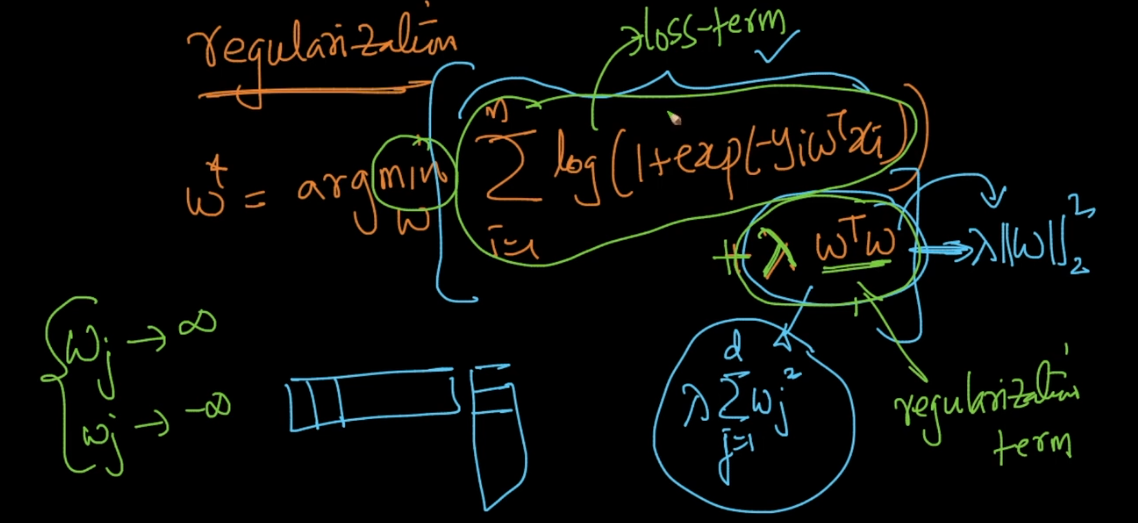 regularization
loss-term
w* = argmin_w [ Σ_{i=1}^{n} log(1+exp(-yiwᵀxi))
+ λ wᵀw → λ||w||₂²
wj → ∞
wj → -∞
λ Σ_{j=1}^{d} wj²
regularization
term